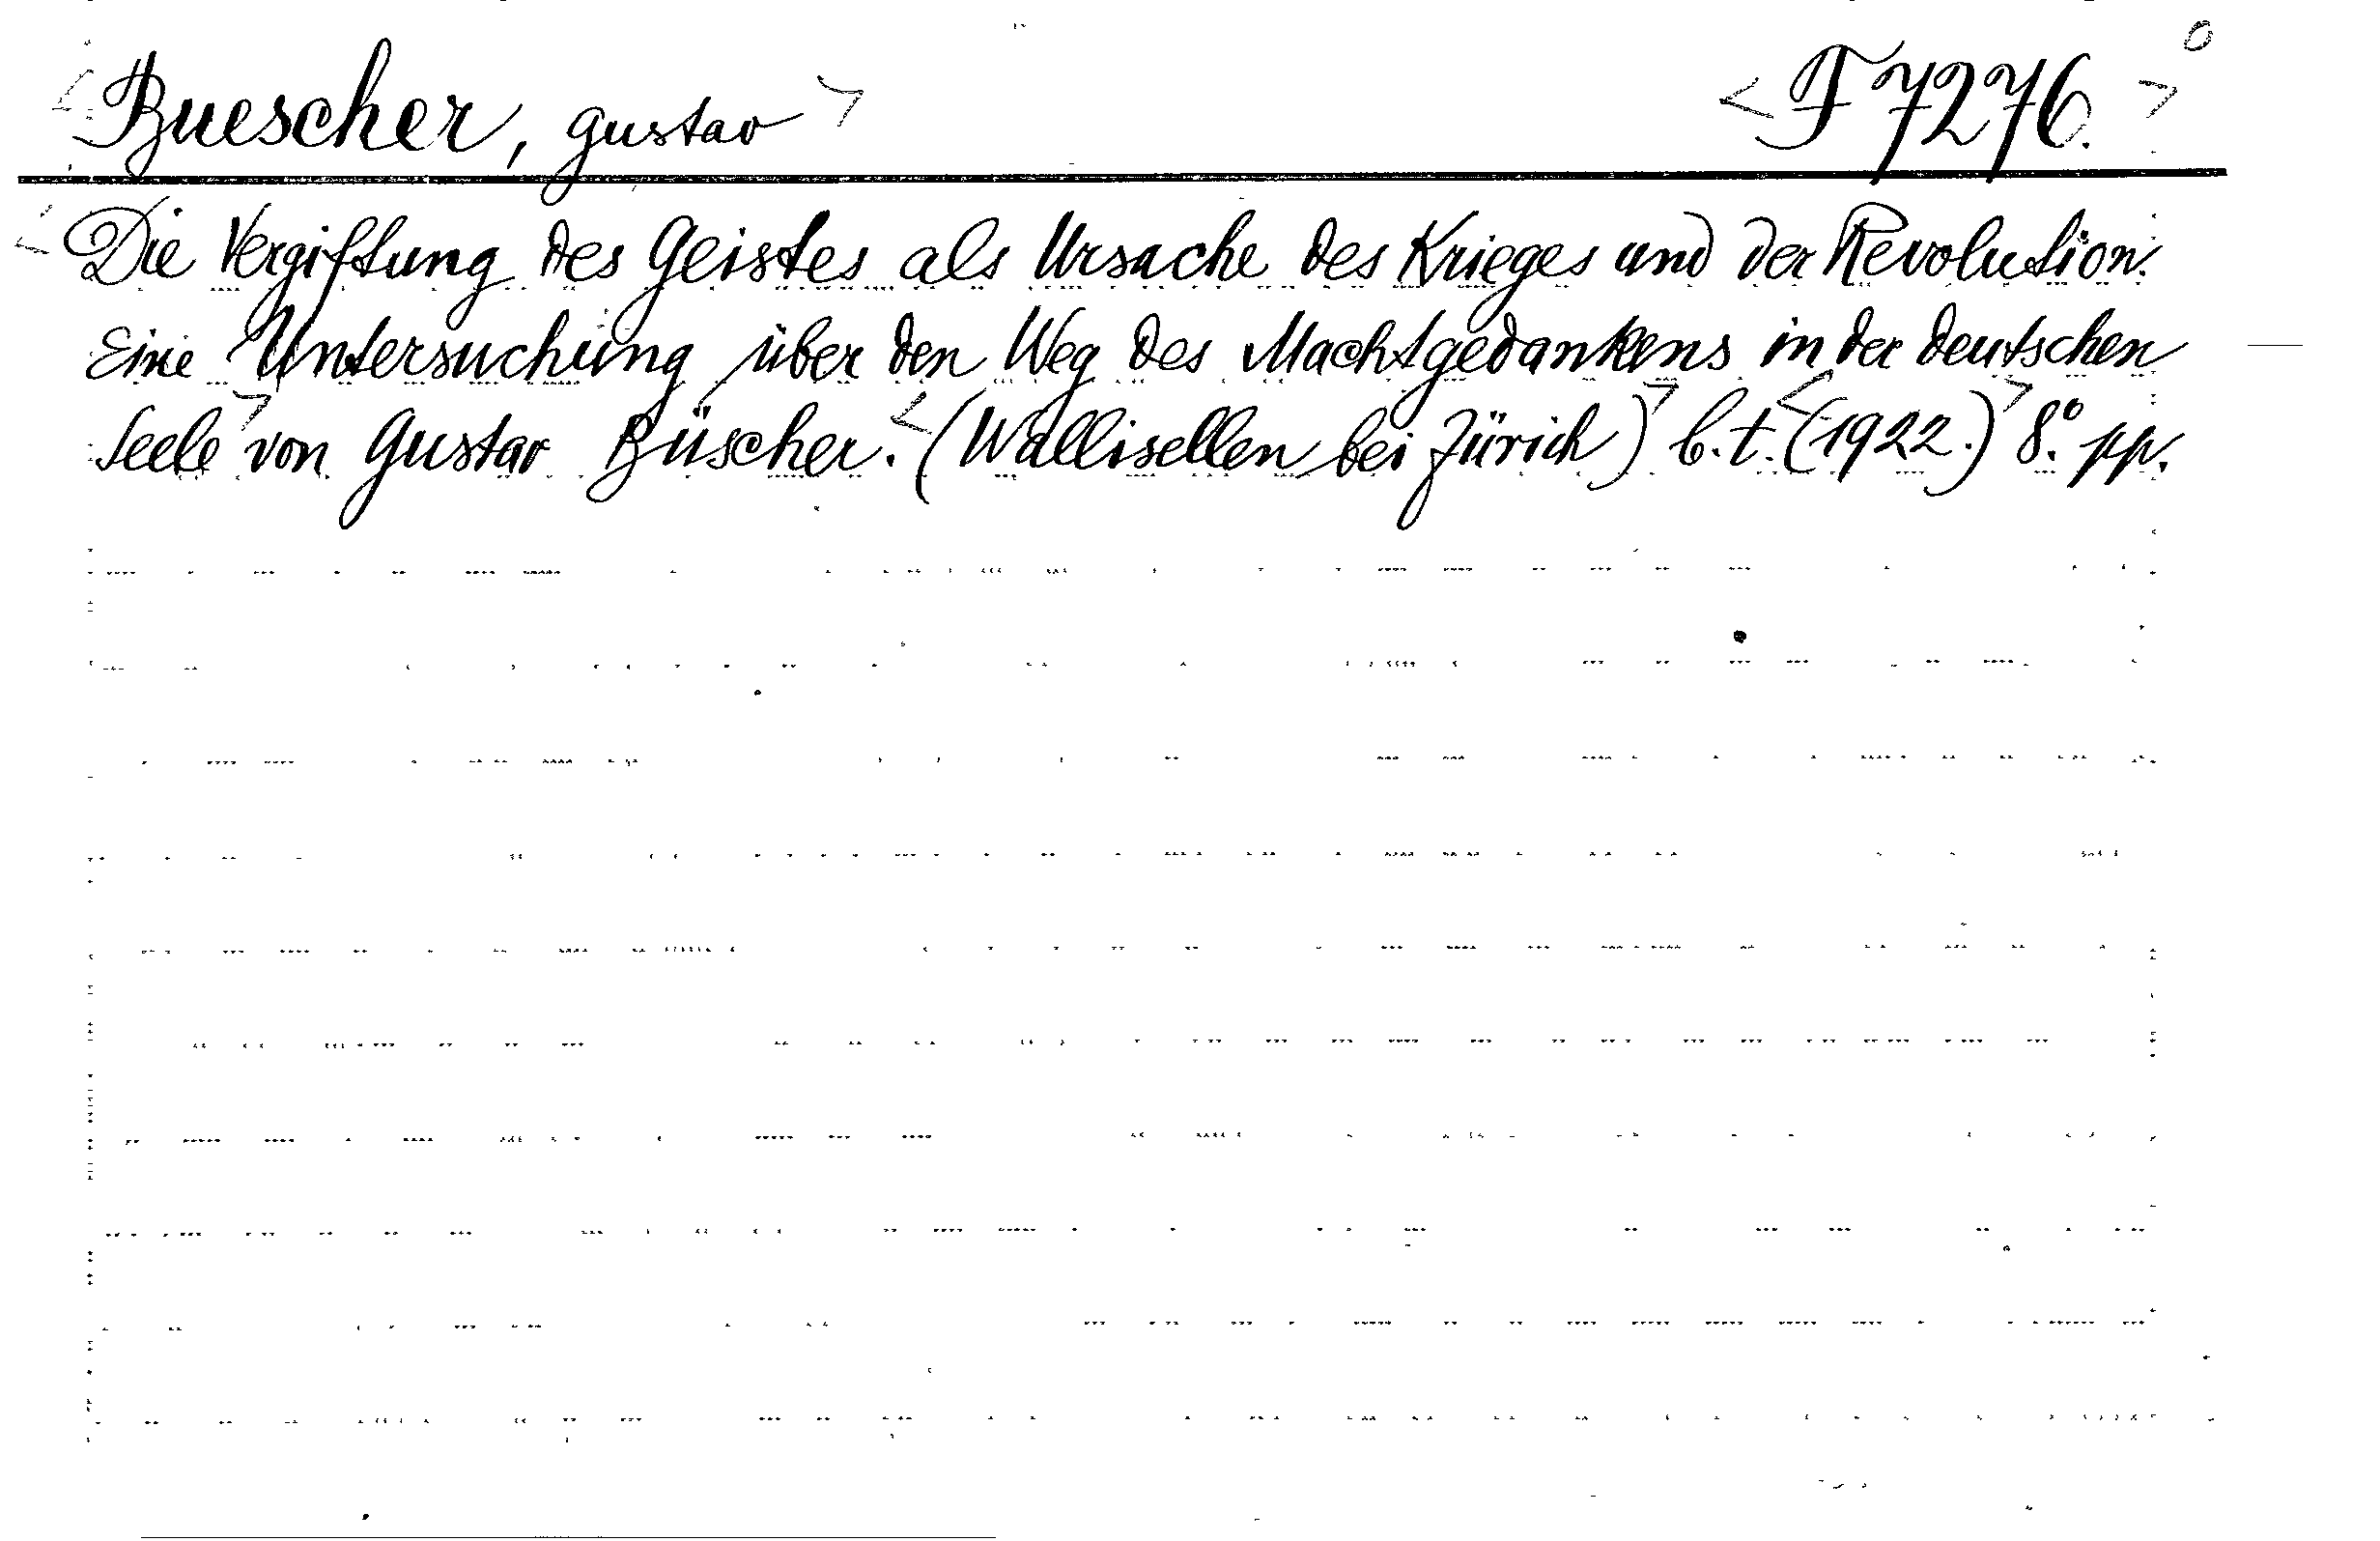 < Buescher, Gustav > < F 7276. > o
< Die Vergiftung des Geistes als Ursache des Krieges und der Revolution.
Eine Untersuchung über den Weg des Machtgedankens in der deutschen
Seele > von Gustav Büscher. < (Wallisellen bei Zürich) > b. t. < (1922.) > 8.° pp.